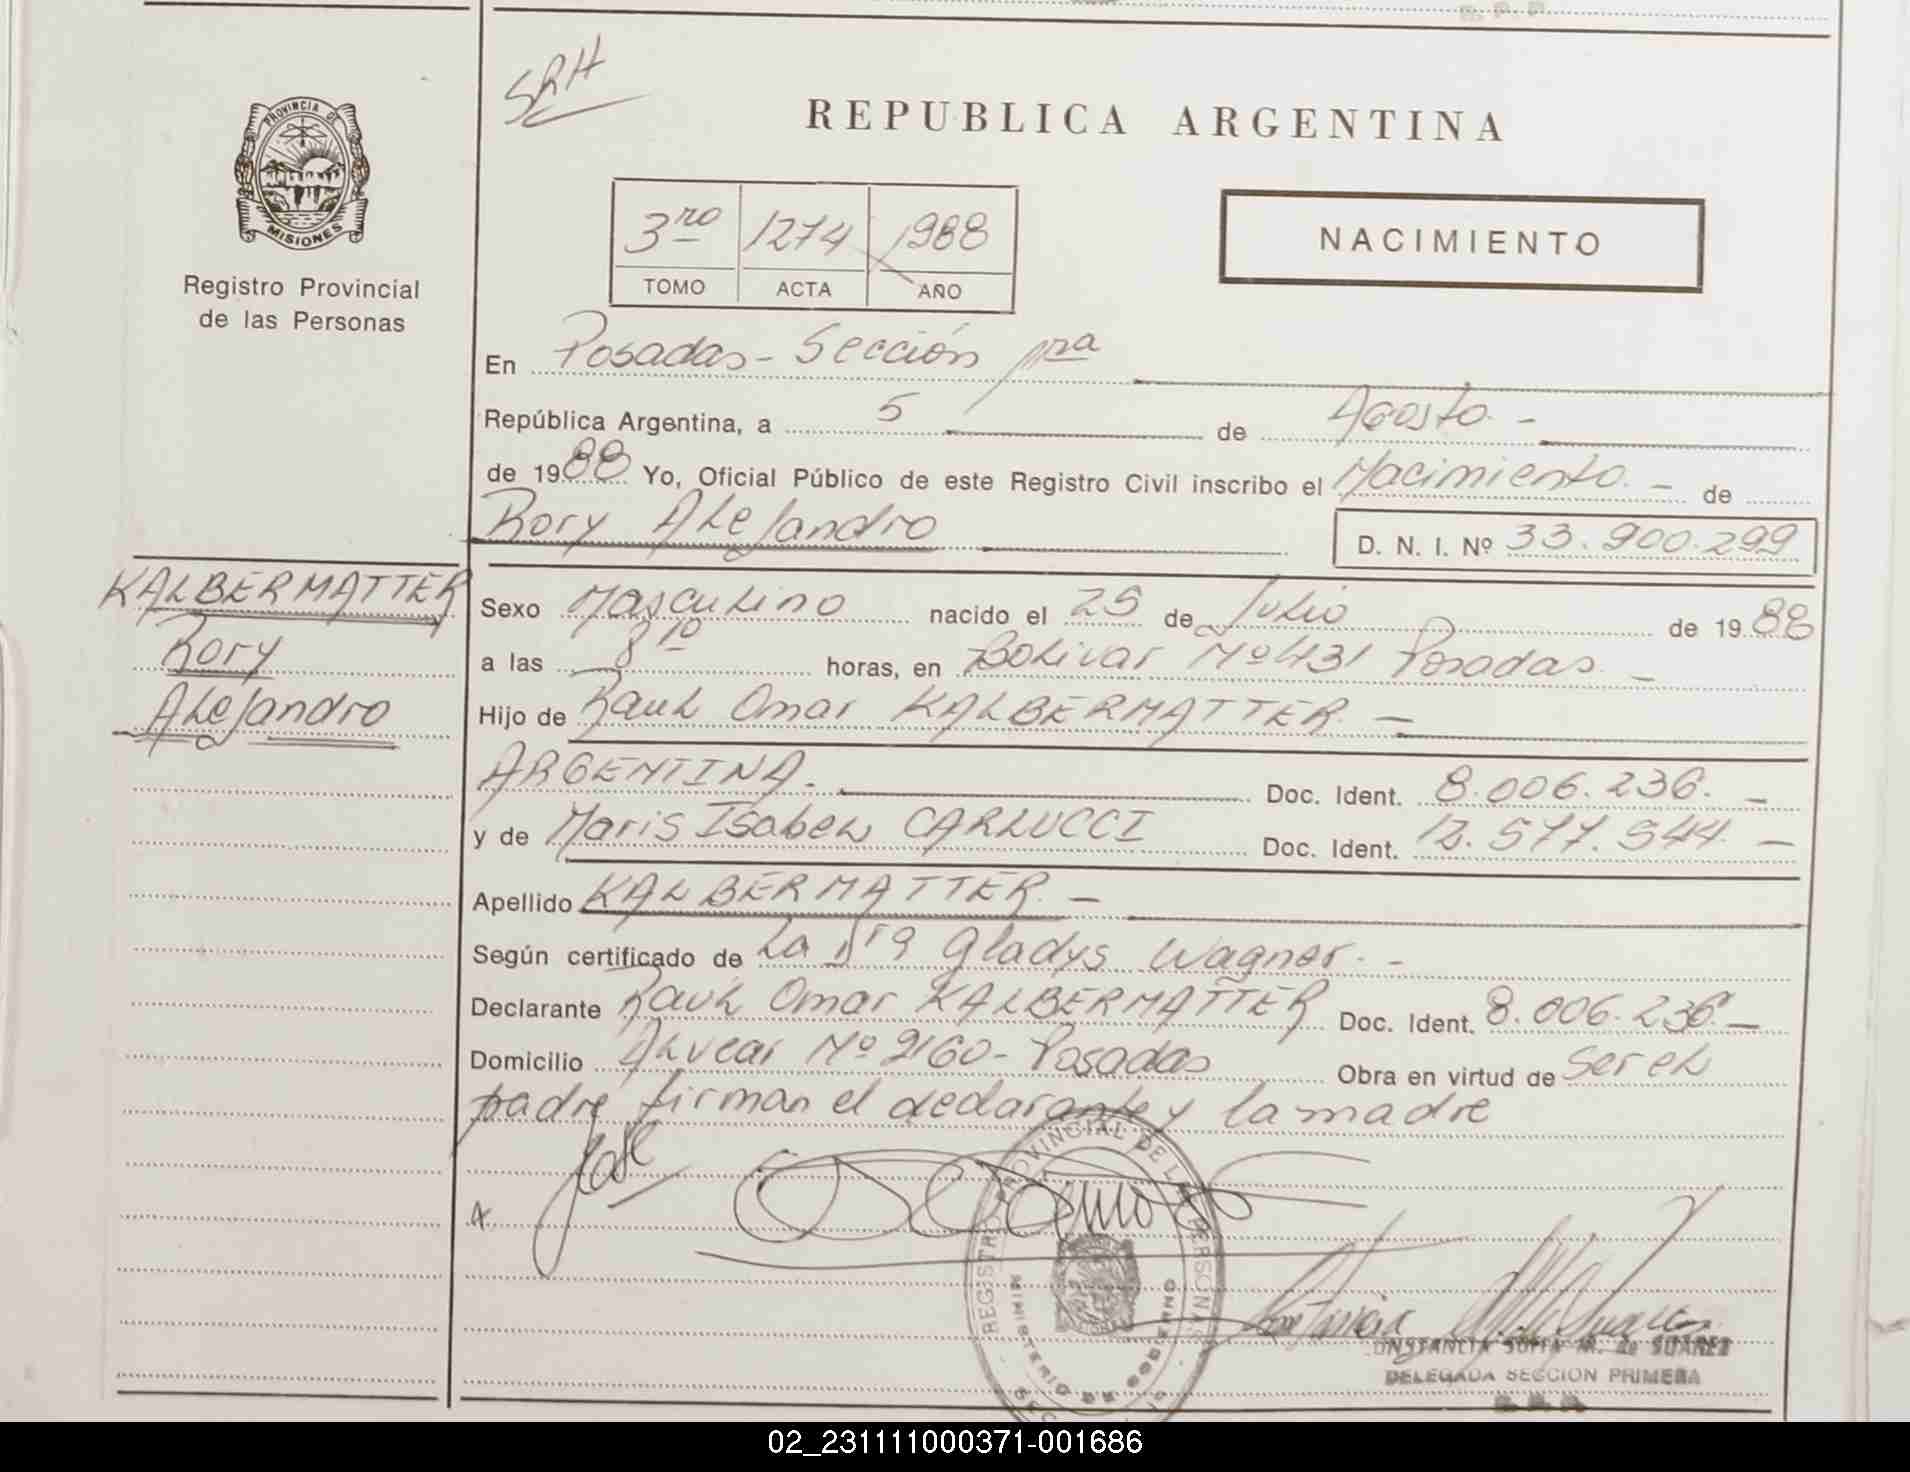 SRH
REPUBLICA ARGENTINA
PROVINCIA DE
MISIONES
Registro Provincial
de las Personas
3ro 1274 1988
TOMO ACTA AÑO
NACIMIENTO
En Posadas - Sección 1ra
República Argentina, a 5 de Agosto. -
de 1988 Yo, Oficial Público de este Registro Civil inscribo el Nacimiento. - de
Rory Alejandro D. N. I. Nº 33.900.299
KALBERMATTER
Rory
Alejandro
Sexo Masculino nacido el 25 de Julio de 1988
a las 8 10 horas, en Bolivar Nº 431 Posadas. -
Hijo de Raul Omar KALBERMATTER. -
ARGENTINA. Doc. Ident. 8.006.236. -
y de Maris Isabel CARLUCCI Doc. Ident. 12.577.544. -
Apellido KALBERMATTER. -
Según certificado de La Dra Gladys Wagner. -
Declarante Raul Omar KALBERMATTER Doc. Ident. 8.006.236. -
Domicilio Alvear Nº 2160 - Posadas Obra en virtud de ser el
padre firman el declarante y la madre
REGISTRO PROVINCIAL DE LAS PERSONAS
MINISTERIO DE GOBIERNO
CONSTANCIA SOFIA M. de SUAREZ
DELEGADA SECCION PRIMERA
R. P. P.
02_231111000371-001686